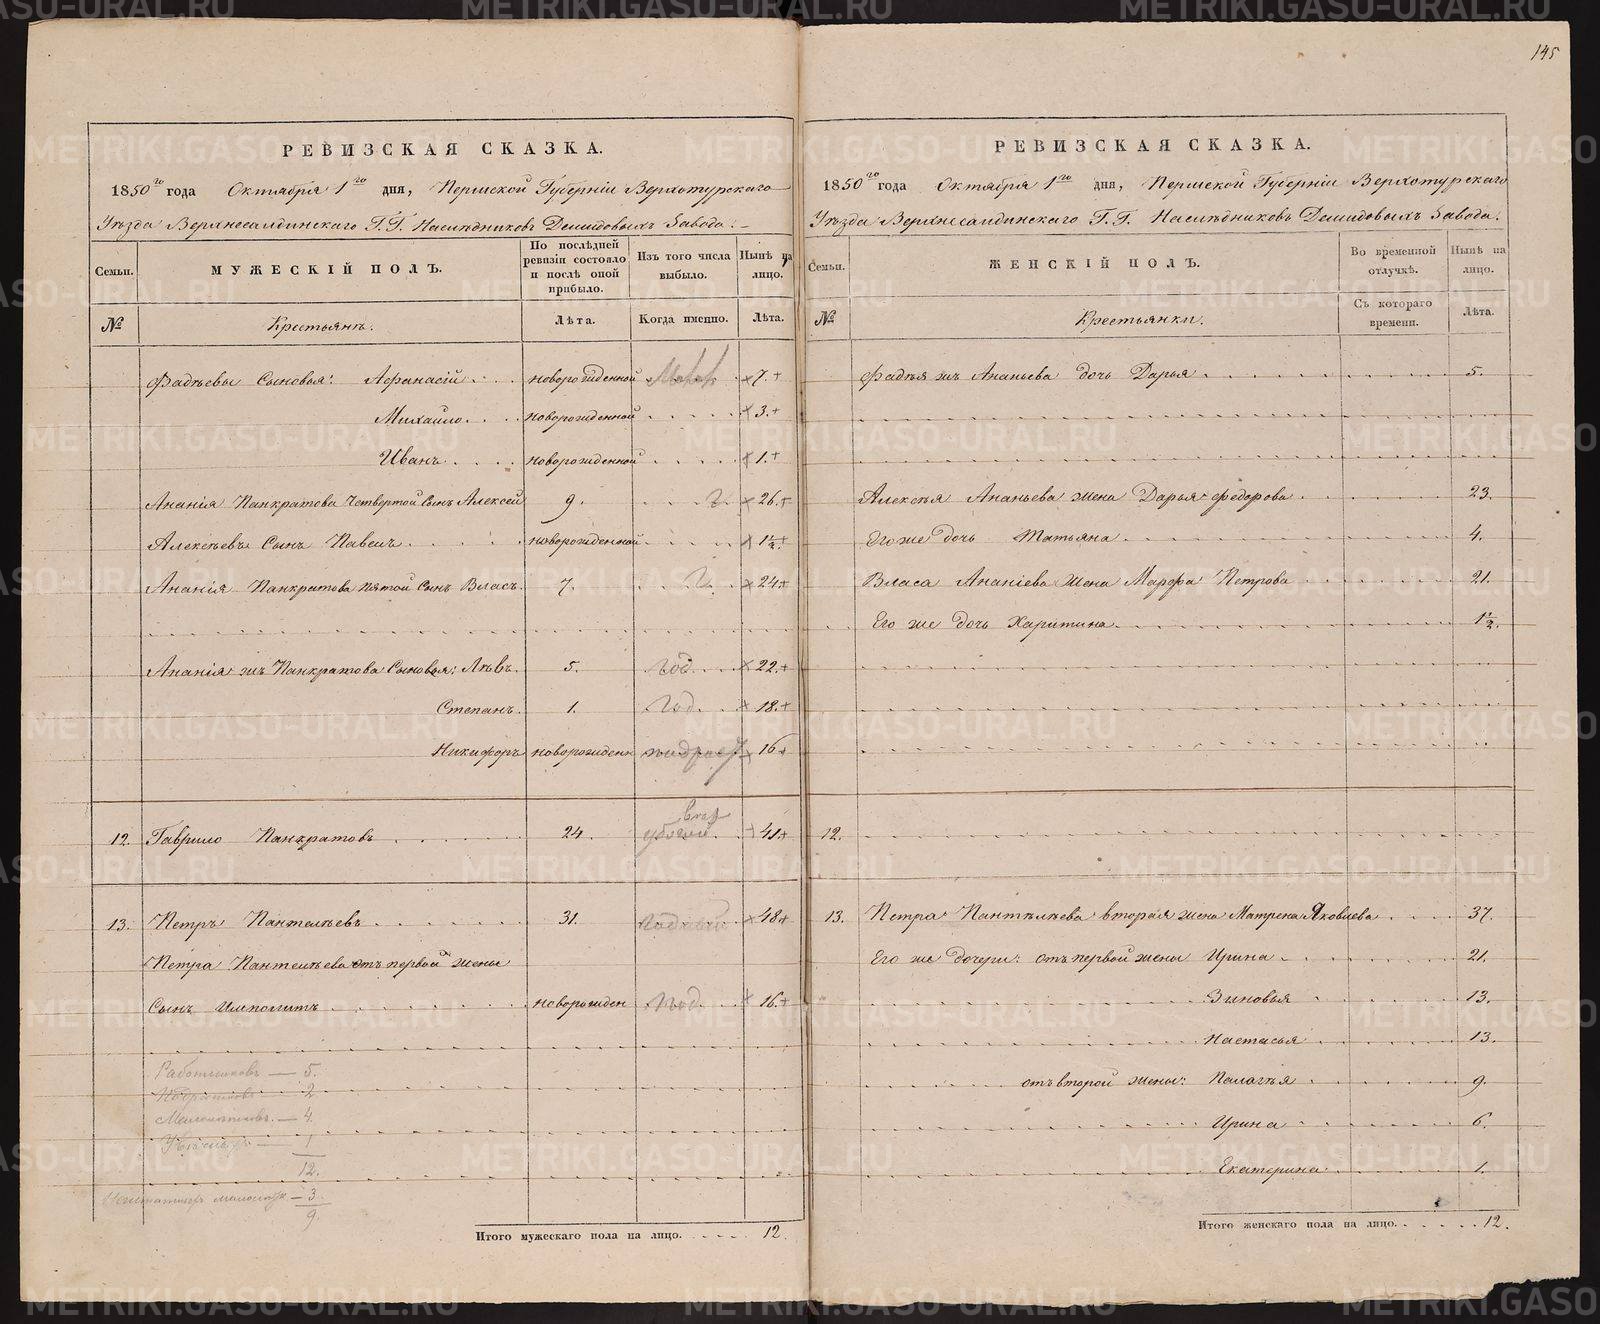 145
РЕВИЗСКАЯ СКАЗКА.
1850го года Октября 1го дня, Пермской Губерніи Верхотурскаго
Уѣзда Верхнесалдинскаго Г.Г. Наслѣдниковъ Демидовыхъ Завода.
Семьи.
МУЖЕСКІЙ ПОЛЪ.
По послѣдней ревизіи состояло и послѣ оной прибыло.
Изъ того числа выбыло.
Нынѣ на лицо.
№
Крестьянъ.
Лѣта.
Когда именно.
Лѣта.
Фадѣевы Сыновья: Афанасій новорожденной 7.
Михайло новорожденной 3.
Иванъ новорожденной 1.
Ананія Панкратова Четвертой Сынъ Алексей 9. 26
Алексѣевъ Сынъ Павелъ новорожденной 1½
Ананія Панкратова пятой Сынъ Власъ. 7. 24
Ананія жъ Панкратова Сыновья: Львъ. 5. год 22
Степанъ. 1. Год 18.
Никифоръ новорожден 16
12. Гаврило Панкратовъ 24. 41
13. Петръ Пантелѣевъ 31. 48
Петра Пантелѣева отъ первой жены
Сынъ Иполитъ новорожден Год 16.
Работниковъ — 5.
Подростковъ — 2
Малолѣтковъ. — 4
1
12.
3.
9.
Итого мужескаго пола на лицо. 12.
РЕВИЗСКАЯ СКАЗКА.
1850го года Октября 1го дня, Пермской Губерніи Верхотурскаго
Уѣзда Верхнесалдинскаго Г.Г. Наслѣдниковъ Демидовыхъ Завода.
Семьи.
ЖЕНСКІЙ ПОЛЪ.
Во временной отлучкѣ.
Нынѣ на лицо.
№
Крестьянки.
Съ котораго времени.
Лѣта.
Фадѣя жъ Ананьева дочь Дарья 5.
Алексѣя Ананьева жена Дарья Федорова 23.
Его же дочь Татьяна 4.
Власа Ананіева жена Марфа Петрова 21.
Его же дочь Харитина 1½.
12.
13. Петра Пантелѣева вторая жена Матрена Яковлева 37.
Его же дочери: отъ первой жены Ирина 21.
Зиновья 13.
Настасья 13.
отъ второй жены: Палагѣя 9.
Ирина 6.
Екатерина 1.
Итого женскаго пола на лицо. 12.
METRIKI.GASO-URAL.RU